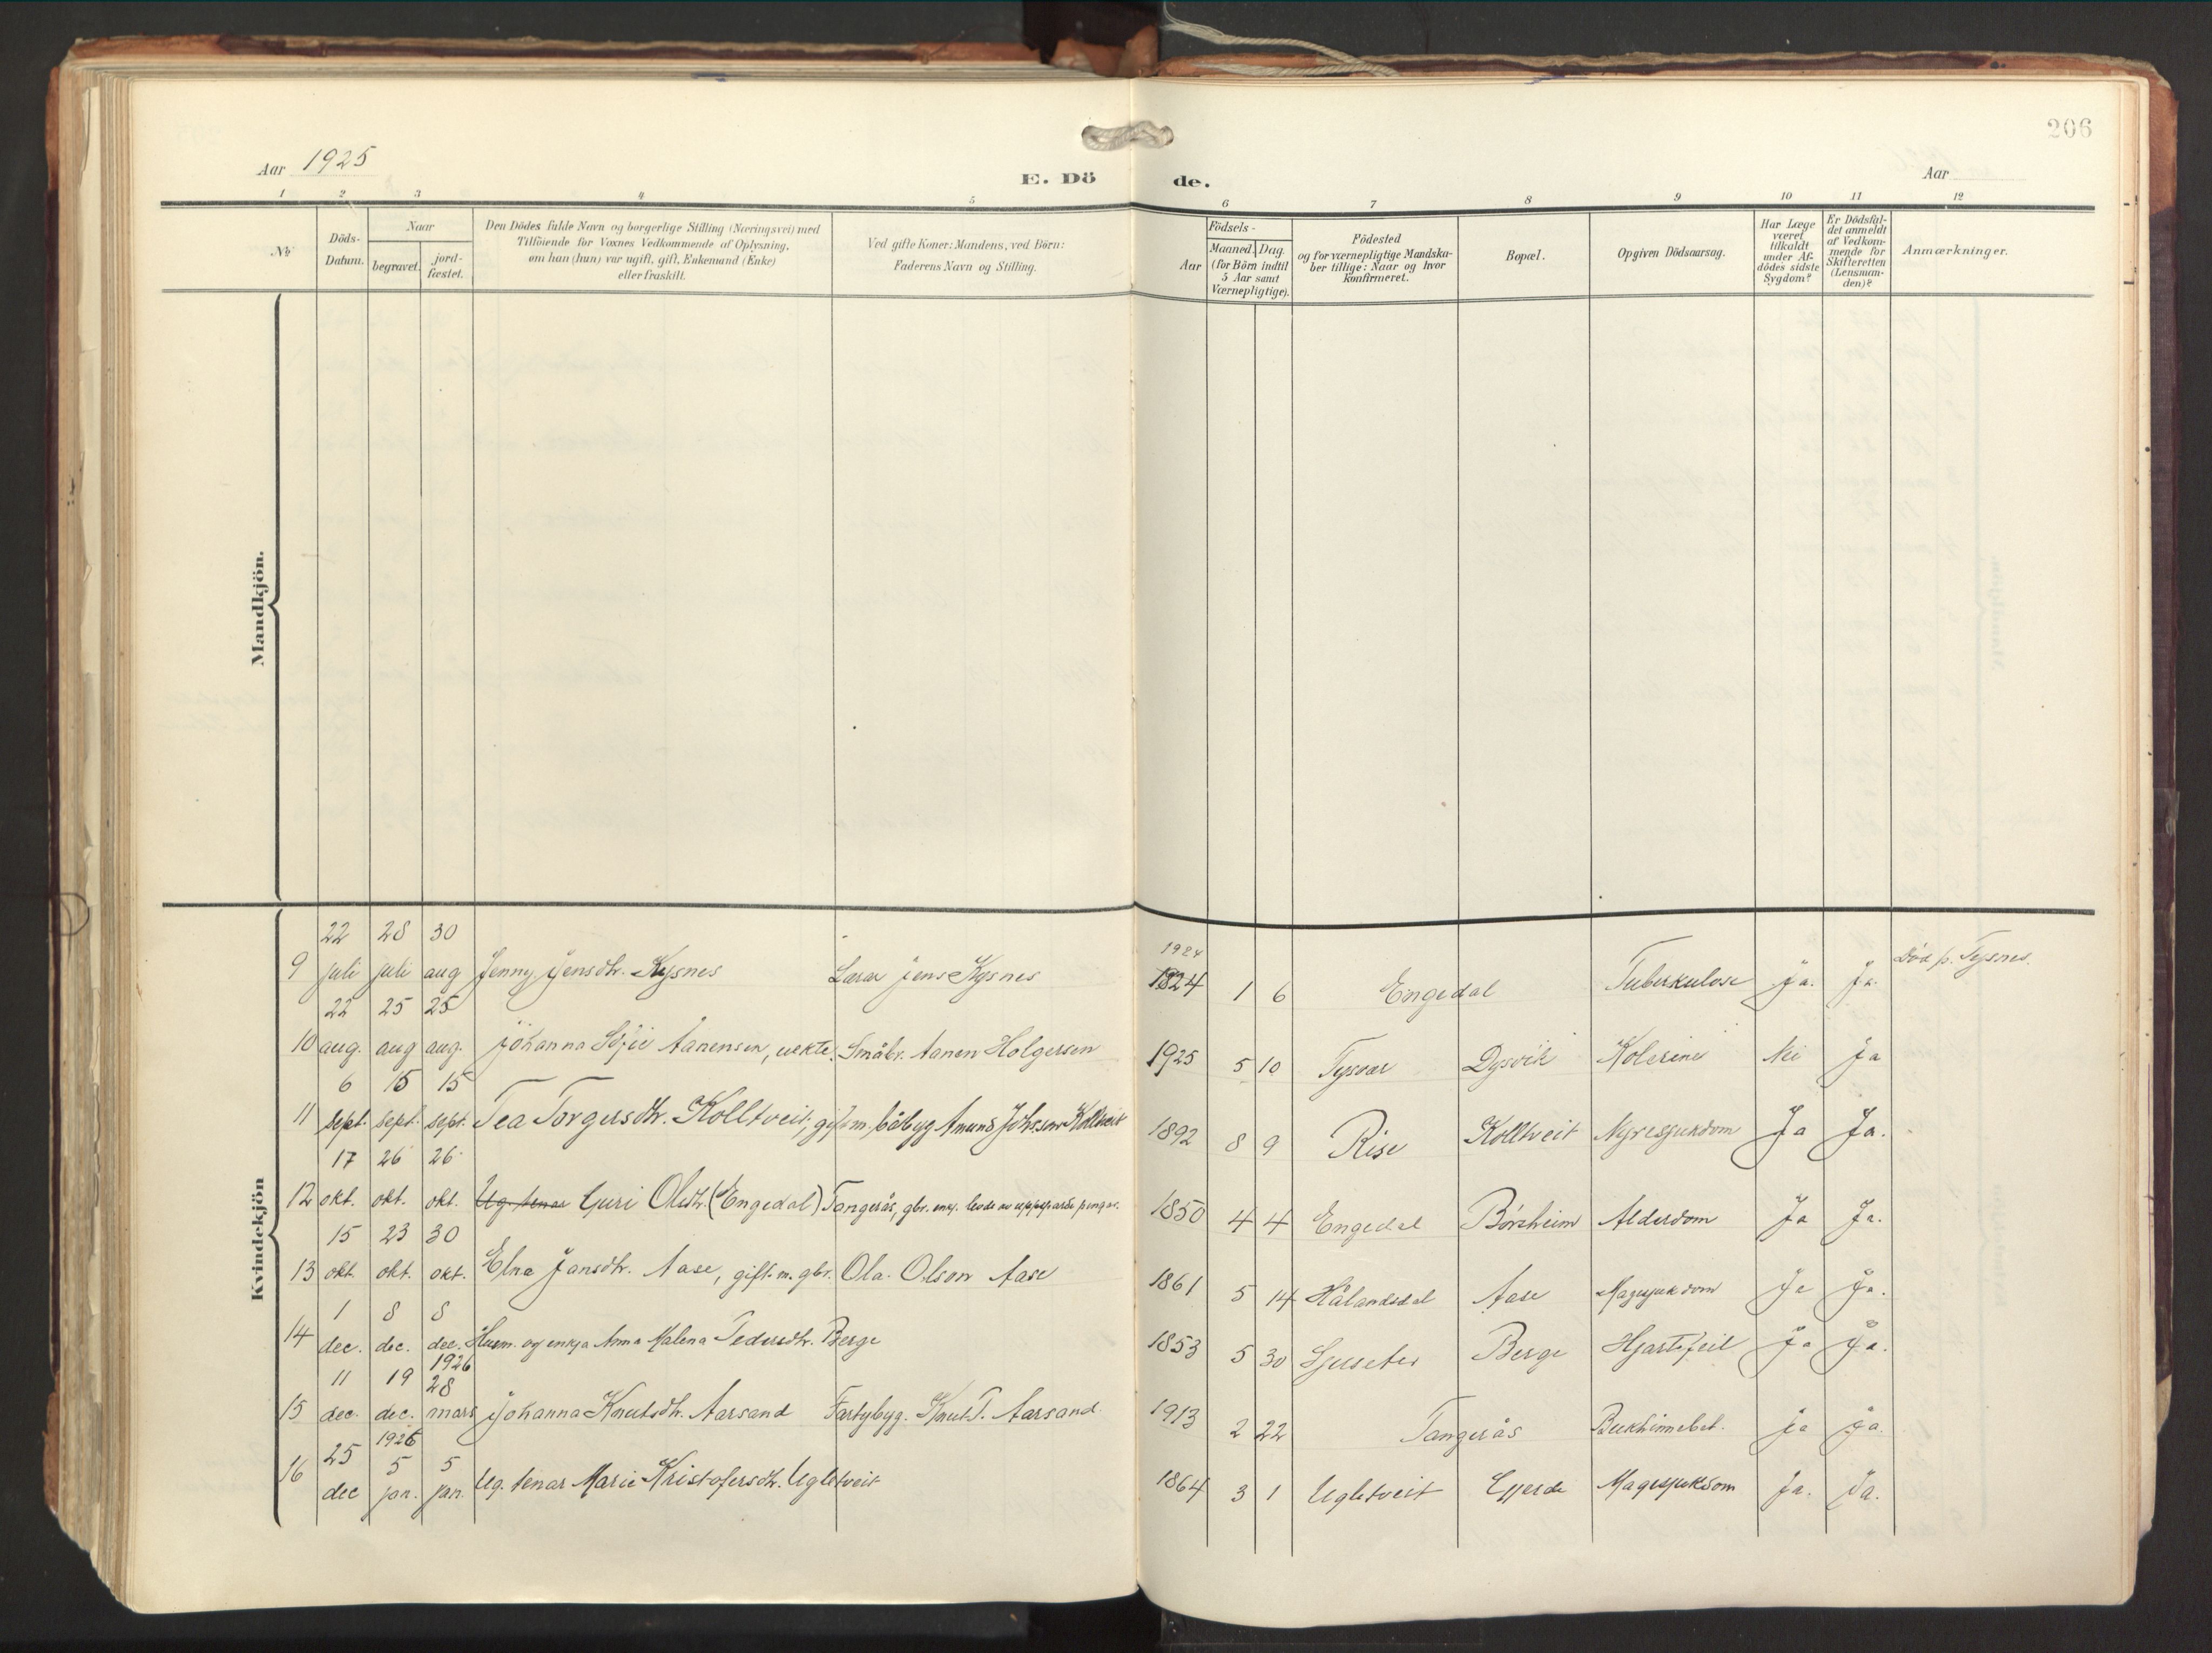 206
Aar 1925
E. Dö de.
Aar
1 2 3 4 5 6 7 8 9 10 11 12
No
Döds-Datum.
Naar
begravet.
jord-fæstet.
Den Dödes fulde Navn og borgerlige Stilling (Næringsvei) med
Tilföiende for Voxnes Vedkommende af Oplysning,
om han (hun) var ugift, gift, Enkemand (Enke)
eller fraskilt.
Ved gifte Koner: Mandens, ved Börn:
Faderens Navn og Stilling.
Födsels-
Aar
Maaned. Dag.
(for Börn indtil
5 Aar samt
Værnepligtige).
Födested
og for værnepligtige Mandska-
ber tillige: Naar og hvor
konfirmeret.
Bopæl.
Opgiven Dödsaarsag.
Har Læge
været
tilkaldt
under Af-
dödes sidste
Sygdom?
Er Dödsfal-
det anmeldt
af Vedkom-
mende for
Skifteretten
(Lensman-
den)?
Anmærkninger.
Mandkjön.
Kvindekjön
22 28 30
9 juli juli aug Jenny Jensdtr. Kysnes Lærar Jens Kysnes 1924 1824 1 6 Engedal Tuberkulose Ja. Ja. Död p. Tysnes.
22 25 25
10 aug. aug aug. Johanna Aanensen, uekte. Småbr. Aanen Holgersen 1925 5 10 Tysvær Dysvik Kolerine Nei Ja
6 15 15
11 sept. sept. sept. Tea Torgersdtr. Kolltveit, gift m. båtbyg Amund Kolltveit 1892 8 9 Rise Kolltveit Nyresjukdom Ja Ja.
17 26 26
12 okt. okt. okt. Ug. tenar Guri Olsdtr. (Engedal) Tangerås, gbr. enkj. levde av uppsparde pengar. 1850 4 4 Engedal Börsheim Alderdom Ja Ja.
15 23 30
13 okt. okt. okt. Elna Jansdtr. Aase, gift m. gbr. Ola Olson Aase 1861 5 14 Hålandsdal Aase Magesjukdom Ja Ja.
1 8 8
14 dec. dec. dec. Husm. og enkja Anna Malena Pedersdtr. Berge 1853 5 30 Berge Hjartefeil Ja Ja.
11 19 1926 28
15 dec. dec. mars Johanna Knutsdtr. Aarsand Fartybyg. Knut T. Aarsand 1913 2 22 Tangerås Bukhinnebet. Ja Ja.
25 1926 5 5
16 dec jan. jan. Ug. tenar Marie Kristofersdtr. Ugletveit 1864 3 1 Ugletveit Gjerde Magesjukdom Ja. Ja.